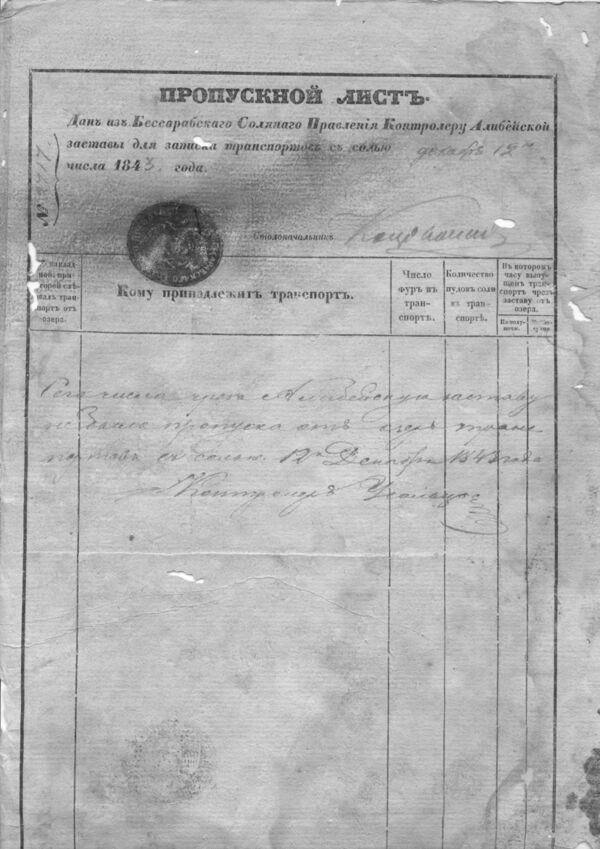 ПРОПУСКНОЙ ЛИСТЪ.
Данъ изъ Бессарабскаго Солянаго Правленія Контролеру Алибейской
заставы для записки транспортовъ съ солью декабря 12го
числа 1843 года.
№
Столоначальникъ
наклад
ной, при
торой слѣ
транс
портъ отъ
озера.
Кому принадлежитъ транспортъ.
Число
фуръ въ
тран-
спортѣ.
Количество
пудовъ соли
въ тран-
спортѣ.
Въ которомъ
часу выпу-
щенъ тран-
спортъ чрезъ
заставу отъ
озера.
Сего числа чрезъ Алибейскую заставу
не было пропуска отъ озера транс
портовъ съ солью. 12го Декабря 1843 года
Контролеръ